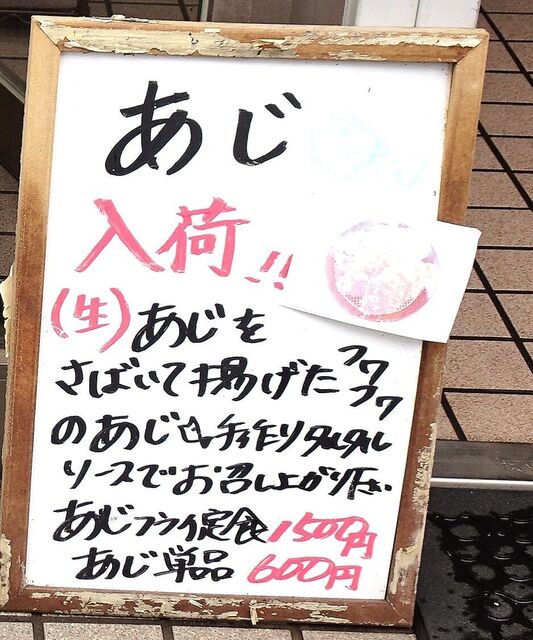 あじ
入荷!!
(生)あじを
さばいて揚げたフワフワ
のあじを手作りタルタル
ソースでお召し上がり下さい
あじフライ定食 1500円
あじ単品 600円